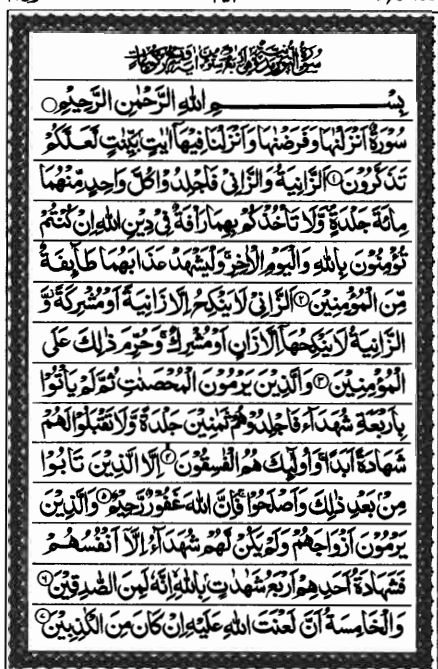 بِسْمِ اللهِ الرَّحْمٰنِ الرَّحِيْمِ
سُوْرَةٌ اَنْزَلْنٰهَا وَفَرَضْنٰهَا وَاَنْزَلْنَا فِيْهَآ اٰيٰتٍۭ بَيِّنٰتٍ لَّعَلَّكُمْ
تَذَكَّرُوْنَ ۝۱ اَلزَّانِيَةُ وَالزَّانِيْ فَاجْلِدُوْا كُلَّ وَاحِدٍ مِّنْهُمَا
مِائَةَ جَلْدَةٍ وَّلَا تَاْخُذْكُمْ بِهِمَا رَاْفَةٌ فِيْ دِيْنِ اللهِ اِنْ كُنْتُمْ
تُؤْمِنُوْنَ بِاللهِ وَالْيَوْمِ الْاٰخِرِ ۚ وَلْيَشْهَدْ عَذَابَهُمَا طَآئِفَةٌ
مِّنَ الْمُؤْمِنِيْنَ ۝۲ اَلزَّانِيْ لَا يَنْكِحُ اِلَّا زَانِيَةً اَوْ مُشْرِكَةً وَّ
الزَّانِيَةُ لَا يَنْكِحُهَآ اِلَّا زَانٍ اَوْ مُشْرِكٌ ۚ وَحُرِّمَ ذٰلِكَ عَلَى
الْمُؤْمِنِيْنَ ۝۳ وَالَّذِيْنَ يَرْمُوْنَ الْمُحْصَنٰتِ ثُمَّ لَمْ يَاْتُوْا
بِاَرْبَعَةِ شُهَدَآءَ فَاجْلِدُوْهُمْ ثَمٰنِيْنَ جَلْدَةً وَّلَا تَقْبَلُوْا لَهُمْ
شَهَادَةً اَبَدًا ۚ وَاُولٰٓئِكَ هُمُ الْفٰسِقُوْنَ ۝۴ اِلَّا الَّذِيْنَ تَابُوْا
مِنْۢ بَعْدِ ذٰلِكَ وَاَصْلَحُوْا ۚ فَاِنَّ اللهَ غَفُوْرٌ رَّحِيْمٌ ۝۵ وَالَّذِيْنَ
يَرْمُوْنَ اَزْوَاجَهُمْ وَلَمْ يَكُنْ لَّهُمْ شُهَدَآءُ اِلَّآ اَنْفُسُهُمْ
فَشَهَادَةُ اَحَدِهِمْ اَرْبَعُ شَهٰدٰتٍۭ بِاللهِ ۙ اِنَّهٗ لَمِنَ الصّٰدِقِيْنَ ۝۶
وَالْخَامِسَةُ اَنَّ لَعْنَتَ اللهِ عَلَيْهِ اِنْ كَانَ مِنَ الْكٰذِبِيْنَ ۝۷